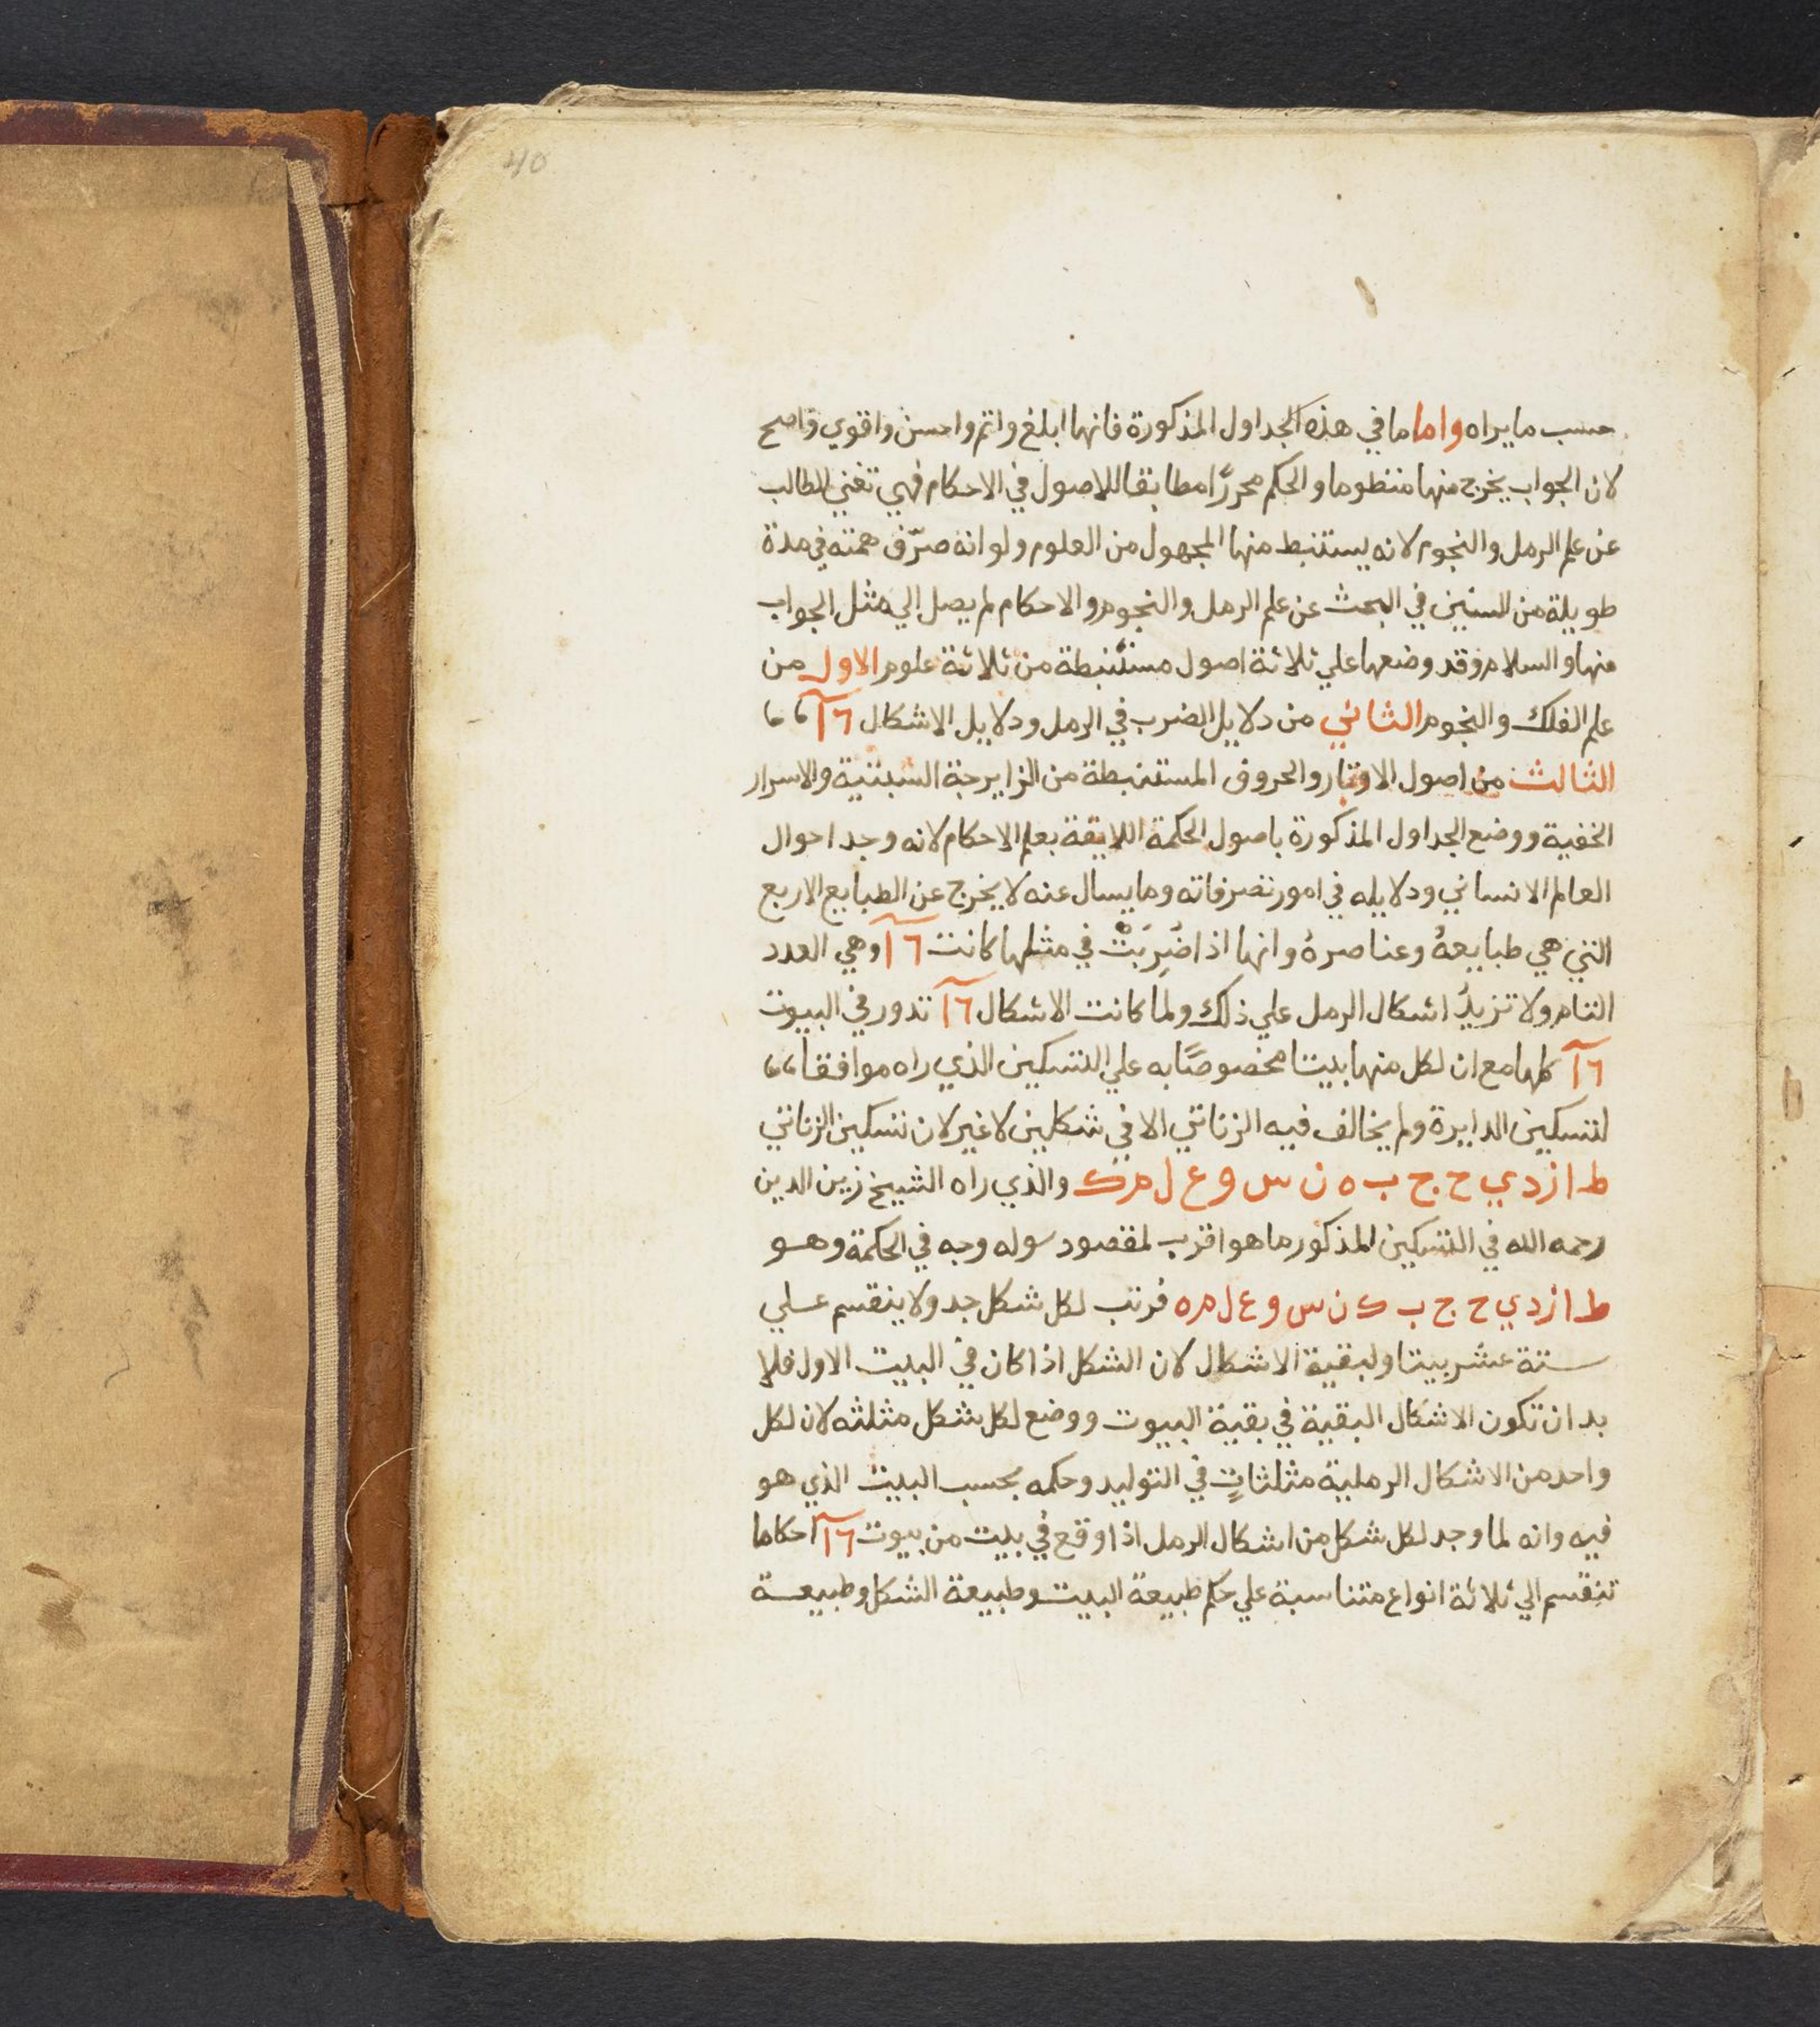 40
حسب ما يراه واما ما في هذه الجداول المذكورة فانها ابلغ واتم واحسن واقوي واصح
لان الجواب يخرج منها منظوما والحكم محررًا مطابقا للاصول في الاحكام فهي تغني الطالب
عن علم الرمل والنجوم لانه يستنبط منها المجهول من العلوم ولو انه صرّف همته في مدة
طويلة من السنين في البحث عن علم الرمل والنجوم والاحكام لم يصل الي مثل الجواب
منها والسلام وقد وضعها علي ثلاثة اصول مستنبطة من ثلاثة علوم الاول من
علم الفلك والنجوم الثاني من دلايل الضرب في الرمل ودلايل الاشكال ١٦
الثالث من اصول الاوتار والحروف المستنبطة من الزايرجة السبتية والاسرار
الخفية ووضع الجداول المذكورة باصول الحكمة اللايقة بعلم الاحكام لانه وجد احوال
العالم الانساني ودلايله في امور تصرفاته وما يسال عنه لا يخرج عن الطبايع الاربع
التي هي طبايعهُ وعناصرهُ وانها اذا ضُرِبَتْ في مثلها كانت ١٦ وهي العدد
التام ولا تزيدُ اشكال الرمل علي ذلك ولما كانت الاشكال ١٦ تدور في البيوت
١٦ كلها مع ان لكل منها بيتا مخصوصًا به علي التسكين الذي راه موافقا
لتسكين الدايرة ولم يخالف فيه الزناتي الا في شكلين لا غير لان تسكين الزناتي
ط ا ز د ي ح ج ب ه ن س و ع ل م ك والذي راه الشيخ زين الدين
رحمه الله في التسكين المذكور ما هو اقرب لمقصود سوله وجه في الحكمة وهو
ط ا ز د ي ح ج ب ك ن س و ع ل م ه فرتب لكل شكل جدولا ينقسم علي
ستة عشر بيتا ولبقية الاشكال لان الشكل اذا كان في البيت الاول فلا
بد ان تكون الاشكال البقية في بقية البيوت ووضع لكل شكل مثلثه لان لكل
واحد من الاشكال الرملية مثلثاتٍ في التوليد وحكمه بحسب البيت الذي هو
فيه وانه لما وجد لكل شكل من اشكال الرمل اذا وقع في بيت من بيوت ١٦ احكاما
تنقسم الي ثلاثة انواع متناسبة علي حكم طبيعة البيت وطبيعة الشكل وطبيعة